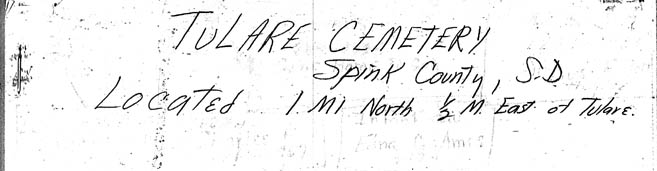 TULARE CEMETERY
Spink County, S.D
Located 1 MI North ½ M. East of Tulare.